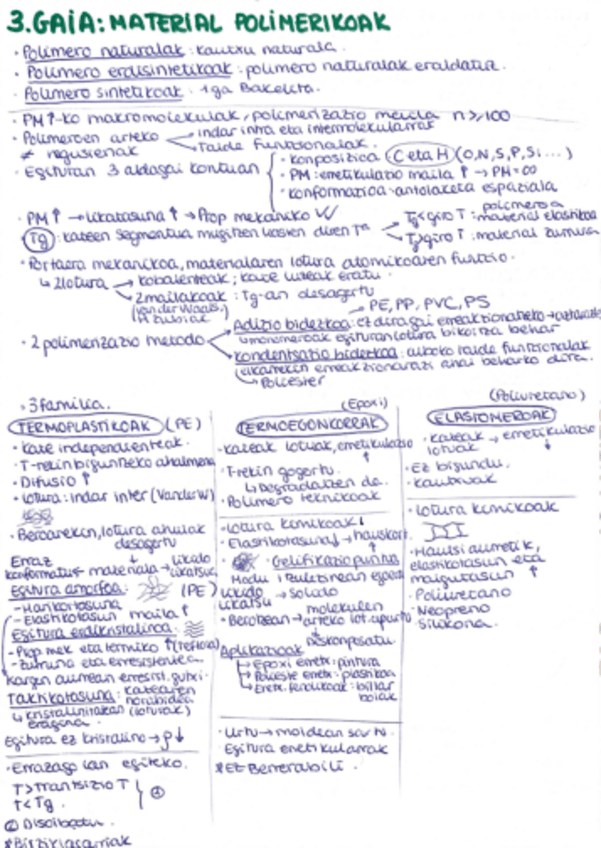 3.GAIA: MATERIAL POLIMERIKOAK
· Polimero naturalak: kautxu naturala.
· Polimero erdisintetikoak: polimero naturalak eraldatuz.
· Polimero sintetikoak: 1ga Bakelita.
· PM↑-ko makromolekulak, polimerizazio maila n≥100
· Polimeroen arteko ≠ nagusienak
indar intra eta intermolekularrak
Talde funtzionalak.
· Egituran 3 aldagai kontuan
· konposizioa (C eta H) (O,N,S,P,Si...)
· PM: erretikulazio maila ↑ → PM=∞
· konformazioa: antolaketa espaziala
polimeroa
· PM↑ → likatasuna ↑ → Prop mekaniko
(Tg): kateen segmentua mugitzen hasten diren Tª
Tg<giro T: material elastikoa
Tg>giro T: material zurruna
· Portaera mekanikoa, materialaren lotura atomikoaren funtzio.
↳ 2 lotura
kobalenteak; kate luzeak eratu.
2mailakoak: Tg-an desagertu
(van der Waals, H zubiak)
PE, PP, PVC, PS
· 2 polimerizazio metodo
Adizio bidezkoa: ez dira gai erreakzionatzeko
↳ monomeroak egituran lotura bikoitza behar
kondentsazio bidezkoa: aukako talde funtzionalak
elkarrekin erreakzionatzeko behar
↳ Poliester
· 3 familia.
TERMOPLASTIKOAK (PE)
· kate independenteak.
· T-rekin biguntzeko ahalmena
· Difusio ↑
· lotura: indar inter (VanderW)
· Beroarekin, lotura ahulak
desagertu
Erraz konformatu ← materiala → likido likatsu
Egitura amorfoa: (PE)
- Harikortasuna
- Elastikotasun maila ↑
Egitura erdikristalinoa:
- Prop mek eta termiko ↑ (tefloia)
- zurruna eta erresistentea
kargen aurrean erresist. gutxi
Taktikotasuna: katearen norabidea
↳ kristalinitatean (loturak)
eragina.
Egitura ez kristalino → ρ↓
· Errazago lan egiteko.
T>Trantsizio T
T<Tg.
② Disolbatu.
*Birziklagarriak
(Epoxi)
TERMOEGONKORRAK
· kateak lotuak, erretikulazio ↑
· T-rekin gogortu.
↳ Degradatzen da.
· Polimero teknikoak
· lotura kimikoak
· Elastikotasuna↓ → hauskor ↑
· Gelifikazio puntua
Modu itzulezinean egoera
likido likatsu → Solido
· Berotzean → molekulen arteko lot. apurtu
↓
Deskonposatu
Aplikazioak
↳ Epoxi erretx: pintura
↳ Polieste erretx: plastikoa
↳ Erretx. fenolikoak: billar bolak
· Urtu → moldean sartu.
· Egitura erretikularrak
*Ez Berrerabili.
(Poliuretano)
ELASTOMEROAK
· kateak → erretikulazio ↓
lotuak
· Ez bigundu.
· kautxuak
· lotura kimikoak
· Hautsi aurretik,
elastikotasun eta
malgutasun ↑
· Poliuretano
· Neopreno
Silikona.